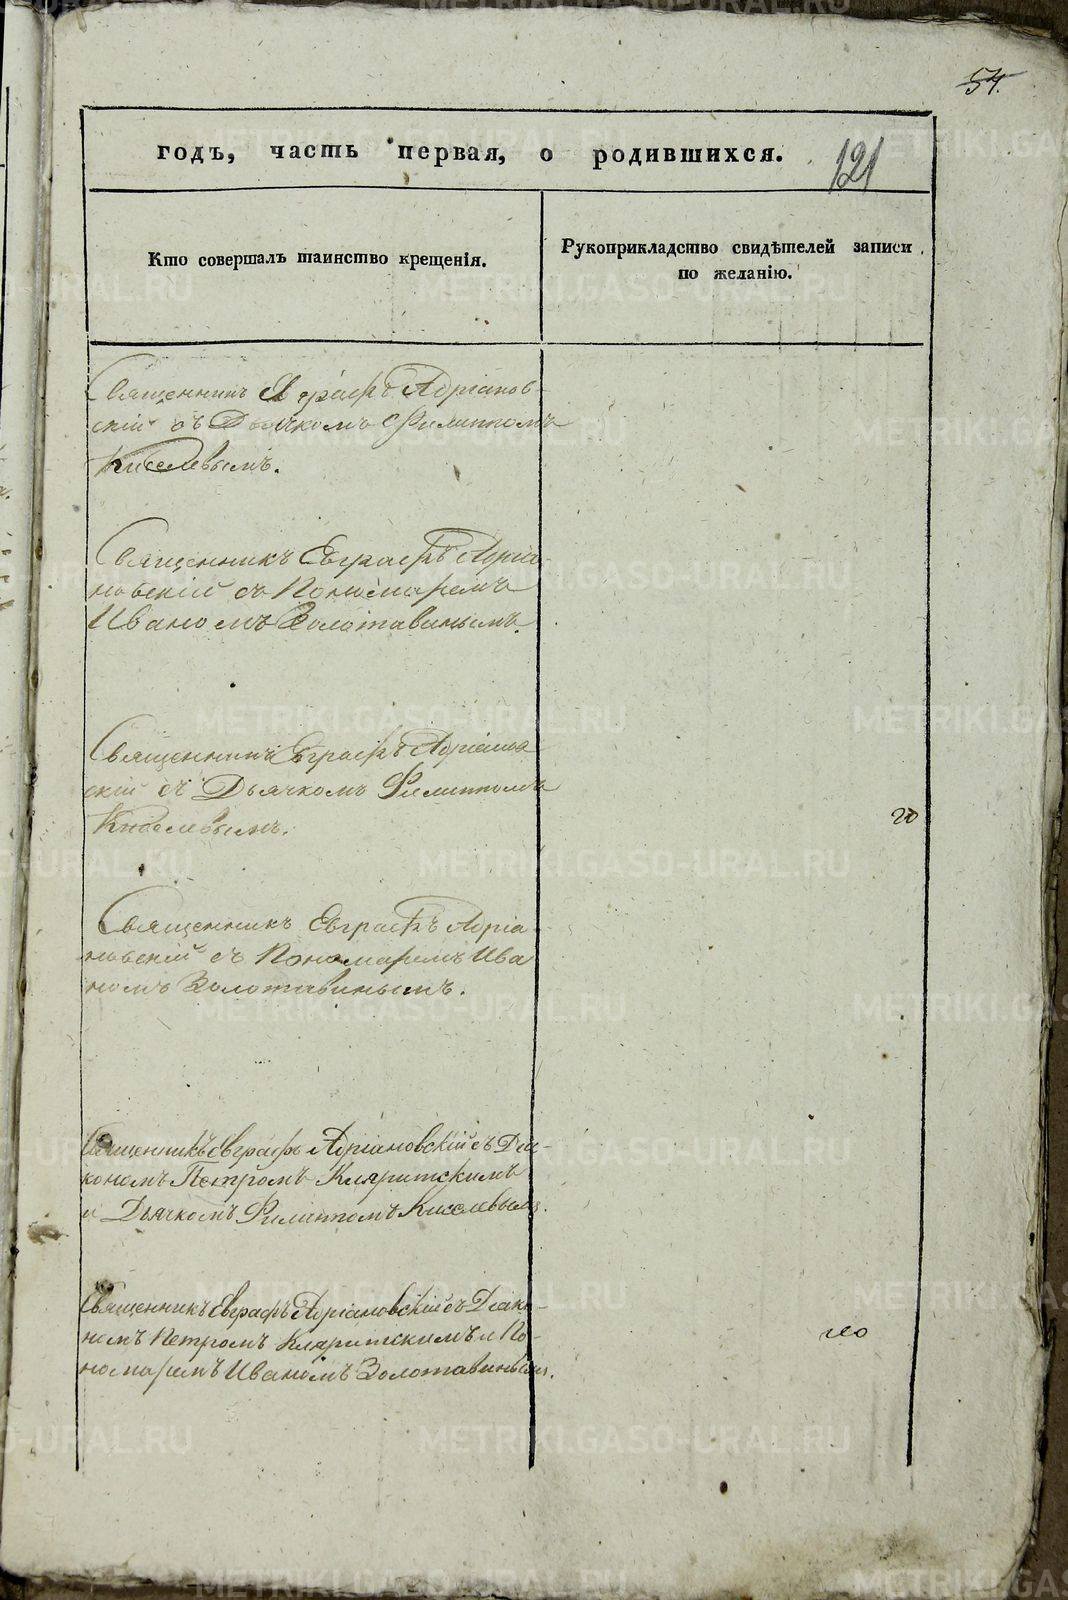 54.
годъ, часть первая, о родившихся.
121
Кто совершалъ таинство крещенія.
Рукоприкладство свидѣтелей записи
по желанію.
Священникъ Евграфъ Адріанов-
скій съ Дьячкомъ Филиппомъ
Киселевымъ.
Священникъ Евграфъ Адріа-
новскій съ Пономаремъ
Иваномъ Золотавинымъ.
Священникъ Евграфъ Адріанов
скій съ Дьячкомъ Филиппомъ
Киселевымъ.
Священникъ Евграфъ Адріа
новскій съ Пономаремъ Ива
номъ Золотавинымъ.
Священникъ Евграфъ Адріановскій съ Діа-
кономъ Петромъ Кляритскимъ
и Дьячкомъ Филиппомъ Киселевымъ.
Священникъ Евграфъ Адріановскій съ Діако-
номъ Петромъ Кляритскимъ и По-
номаремъ Иваномъ Золотавинымъ.
METRIKI.GASO-URAL.RU